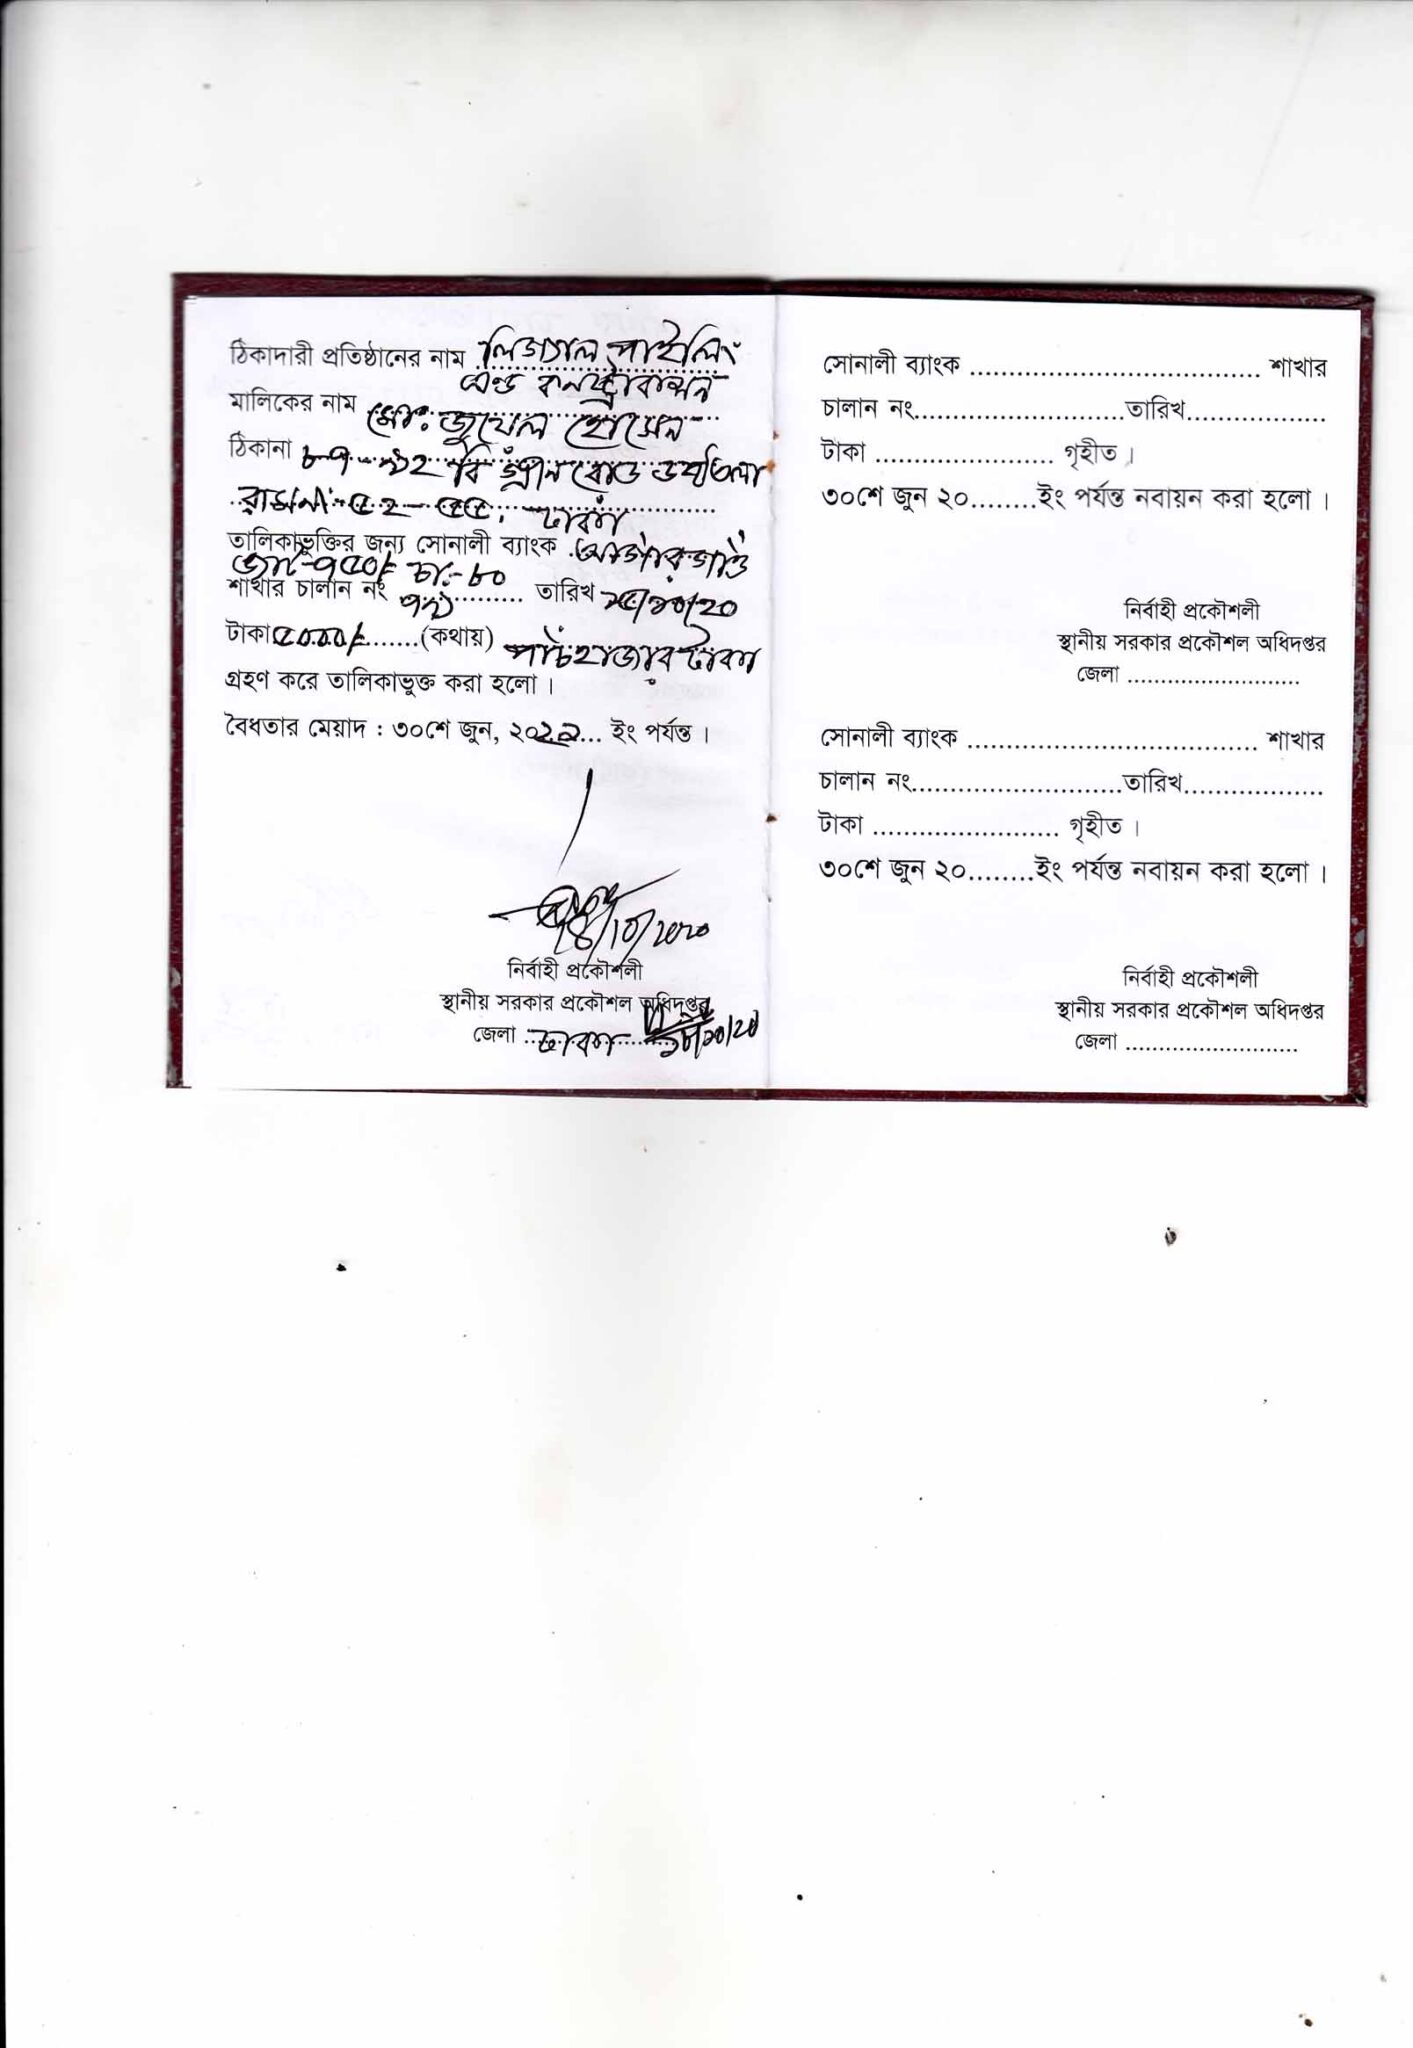 ঠিকাদারী প্রতিষ্ঠানের নাম লিজ্যাল পাইলিং
এন্ড কনস্ট্রাকশন
মালিকের নাম মোঃ জুয়েল হোসেন
ঠিকানা ৮৭-৯১২ বি গ্রীন রোড
৫২-৫৫, ঢাকা
তালিকাভুক্তির জন্য সোনালী ব্যাংক আগারগাঁও
৭৫০/= চা:-৮০
শাখার চালান নং তারিখ ১৫/১০/২০
টাকা ৫০০০/=.......(কথায়) পাঁচ হাজার টাকা
গ্রহণ করে তালিকাভুক্ত করা হলো ।
বৈধতার মেয়াদ : ৩০শে জুন, ২০২১... ইং পর্যন্ত ।
18/10/2020
নির্বাহী প্রকৌশলী
স্থানীয় সরকার প্রকৌশল অধিদপ্তর
জেলা ..ঢাকা........ ১৮/১০/২০
সোনালী ব্যাংক ........................................ শাখার
চালান নং.............................তারিখ...................
টাকা ......................... গৃহীত ।
৩০শে জুন ২০.........ইং পর্যন্ত নবায়ন করা হলো ।
নির্বাহী প্রকৌশলী
স্থানীয় সরকার প্রকৌশল অধিদপ্তর
জেলা ..........................
সোনালী ব্যাংক ........................................ শাখার
চালান নং.............................তারিখ...................
টাকা .......................... গৃহীত ।
৩০শে জুন ২০.........ইং পর্যন্ত নবায়ন করা হলো ।
নির্বাহী প্রকৌশলী
স্থানীয় সরকার প্রকৌশল অধিদপ্তর
জেলা ..........................